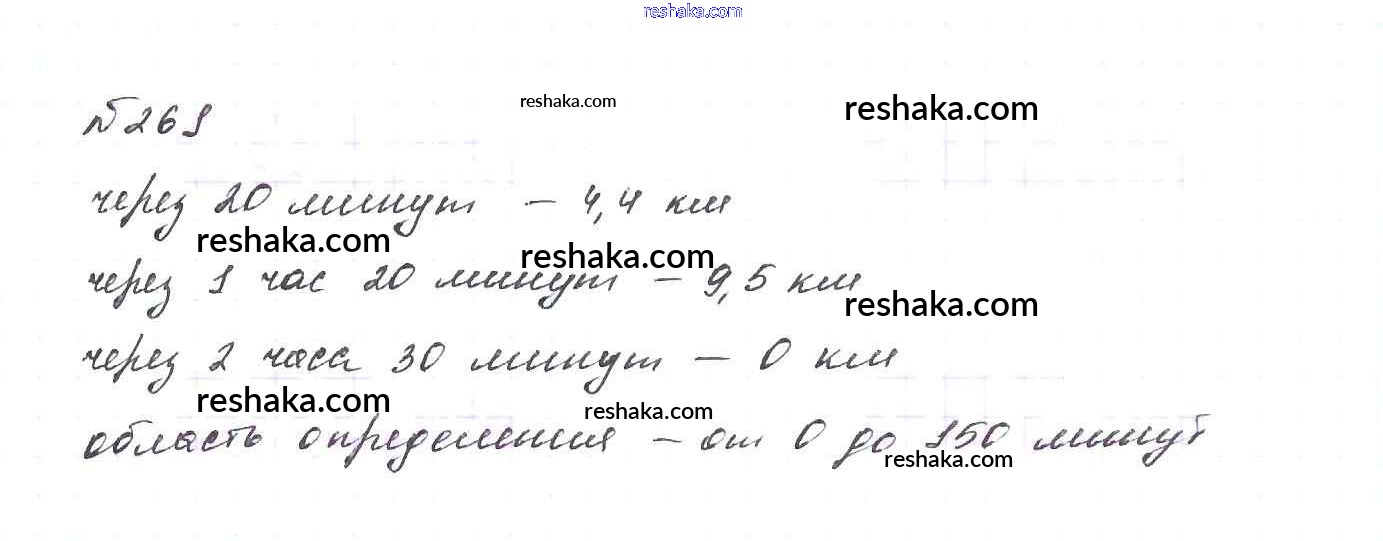 reshaka.com
№ 261
reshaka.com
reshaka.com
через 20 минут – 4,4 км
reshaka.com
reshaka.com
через 1 час 20 минут – 9,5 км
reshaka.com
через 2 часа 30 минут – 0 км
reshaka.com
reshaka.com
область определения – от 0 до 150 минут
reshaka.com